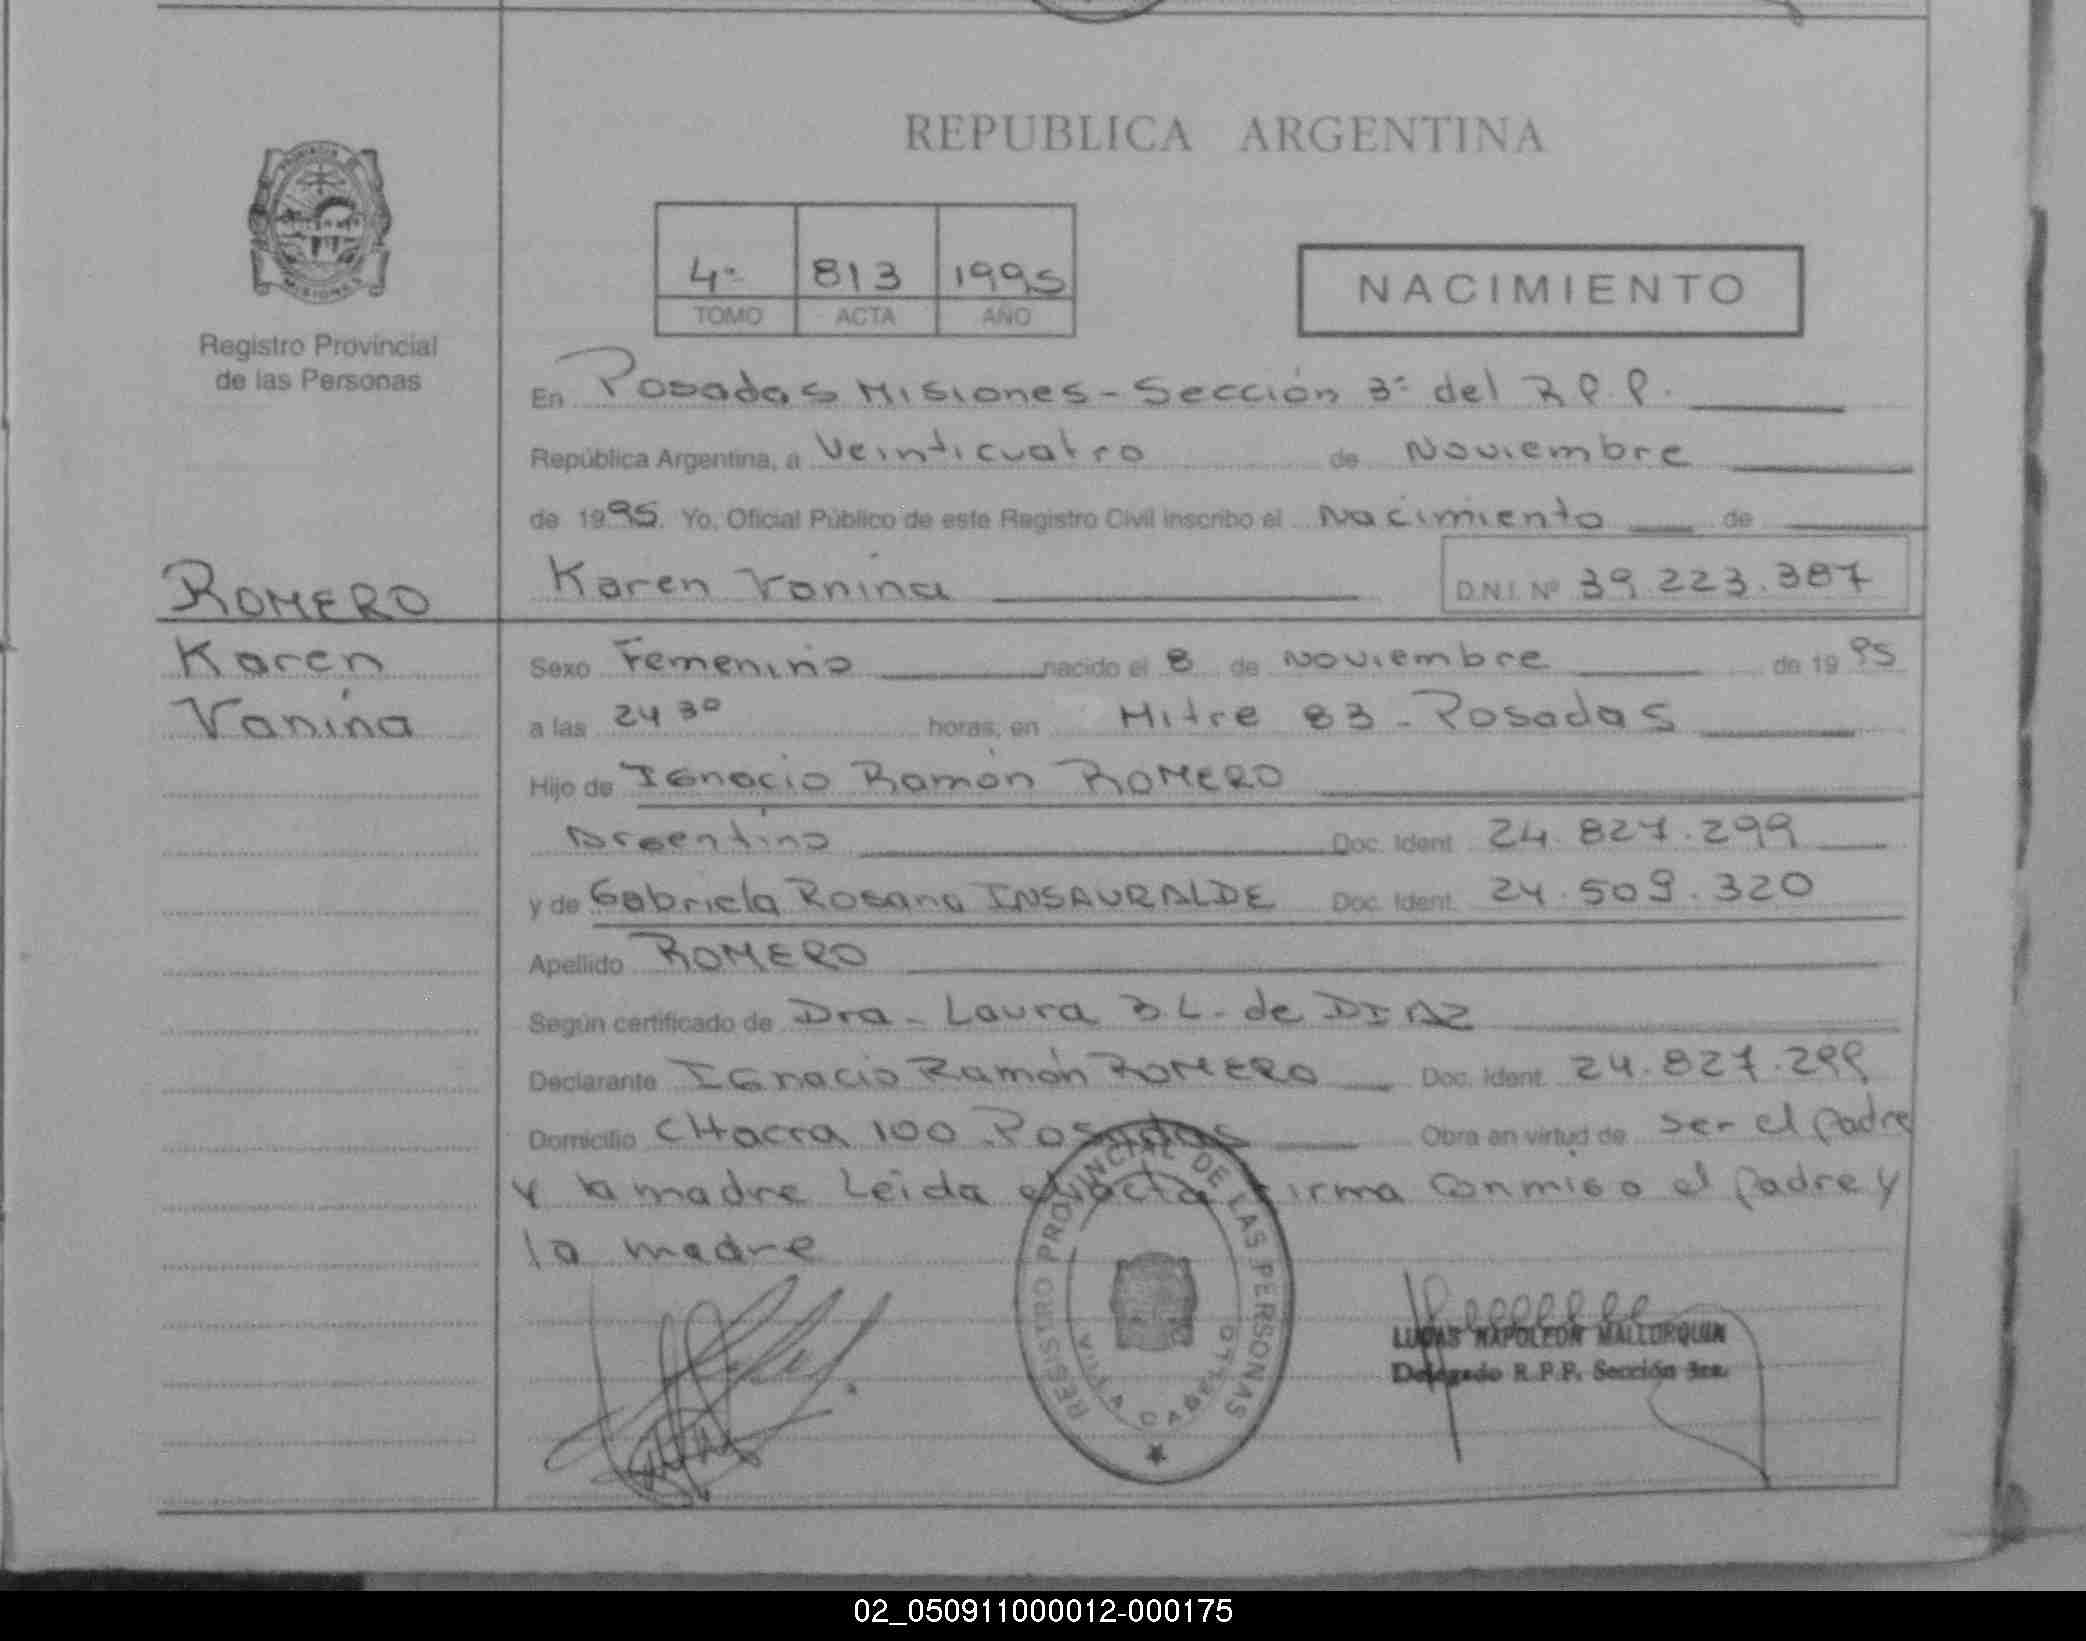 REPUBLICA ARGENTINA
PROVINCIA DE
MISIONES
Registro Provincial
de las Personas
4º 813 1995
TOMO ACTA AÑO
NACIMIENTO
En Posadas Misiones - Sección 3ª del R.P.P.
República Argentina, a Veinticuatro de Noviembre
de 1995. Yo, Oficial Público de este Registro Civil inscribo el Nacimiento de
ROMERO
Karen
Vanina
Karen Vanina D.N.I. Nº 39.223.387
Sexo Femenino nacido el 8 de Noviembre de 1995
a las 24 30 horas, en Mitre 83 - Posadas
Hijo de Ignacio Ramón ROMERO
Argentino Doc. Ident. 24.827.299
y de Gabriela Rosana INSAURALDE Doc. Ident. 24.509.320
Apellido ROMERO
Según certificado de Dra - Laura B.L. de DIAZ
Declarante Ignacio Ramón ROMERO Doc. Ident. 24.827.299
Domicilio CHacra 100 Posadas Obra en virtud de ser el padre
y la madre Leida el acta firma conmigo el padre y
la madre
REGISTRO PROVINCIAL DE LAS PERSONAS
VILLA CABELLO
LUCAS NAPOLEON MALLORQUIN
Delegado R.P.P. Sección 3ra.
02_050911000012-000175